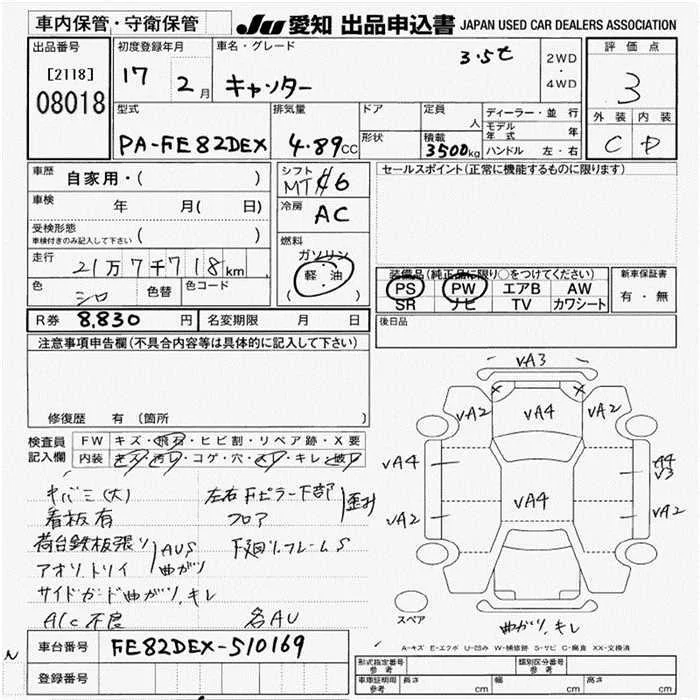 車内保管・守衛保管
JU 愛知 出品申込書 JAPAN USED CAR DEALERS ASSOCIATION
出品番号
[2118]
08018
初度登録年月
17 2月
車名・グレード
キャンター 3.5t
2WD
・
4WD
評価点
3
外装 内装
C D
型式
PA-FE82DEX
排気量
4.89cc
ドア
形状
定員
人
積載
3500kg
ディーラー・並行
モデル年式 年
ハンドル 左・右
車歴
自家用・( )
車検 年 月( 日)
受検形態
車検付きのみ記入して下さい ( )
走行 21万7千718km
色 シロ 色替 色コード
シフト
MT 6
冷房
AC
燃料
ガソリン
軽・油
( )
セールスポイント(正常に機能するものに限ります)
装備品(純正品に限り○をつけてください)
PS PW エアB AW
SR ナビ TV カワシート
新車保証書
有・無
R券 8,830円 名変期限 月 日
後日品
注意事項申告欄(不具合内容等は具体的に記入して下さい)
修復歴 有(箇所
検査員
記入欄
FW キズ・飛石・ヒビ割・リペア跡・X要
内装 キズ・汚レ・コゲ・穴・スレ・キレ・破レ
キバミ(大) 左右Fピラー下部
看板有 フロア 歪み
荷台鉄板張リ AUS 下廻リフレームS
アオリトリイ 曲がり
サイドガード曲がり、キレ
A/c不良 各AU
VA3
VA2 VA4 VA2
VA4 A4
V3
VA4
VA2 VA2
スペア
曲がり、キレ
A-キズ E-エクボ U-凹み W-補修跡 S-サビ C-腐食 XX-交換済
車台番号 FE82DEX-510169
登録番号
型式指定番号
参考
類別区分番号
参考
車庫証明用
参考
長さ cm 幅 cm 高さ cm